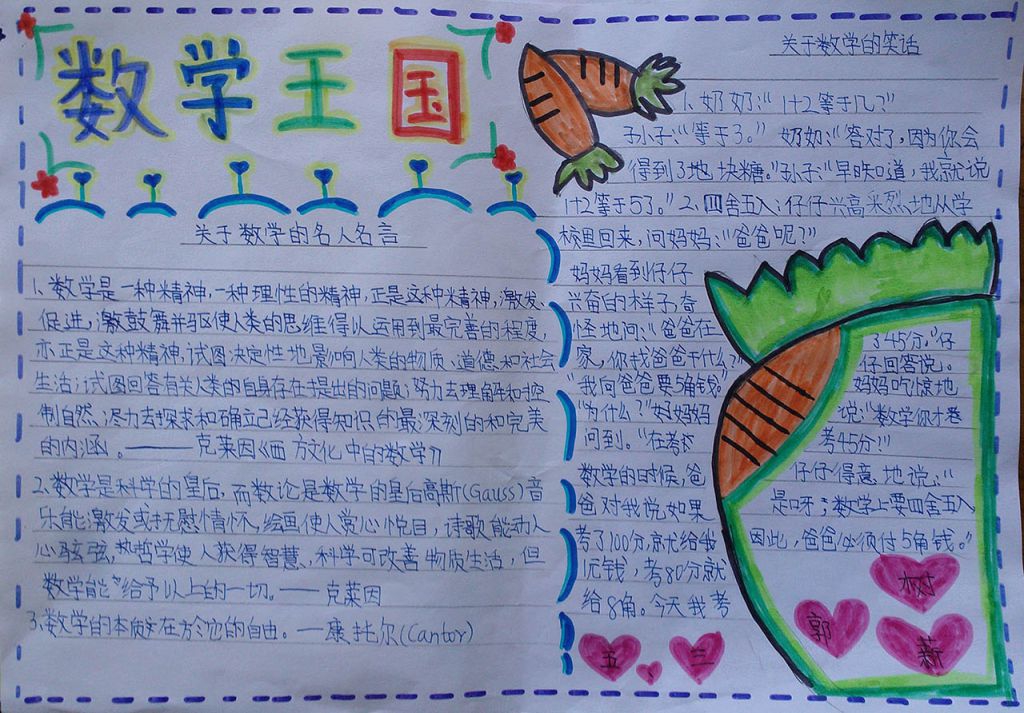 数学王国
关于数学的名人名言
1、数学是一种精神,一种理性的精神,正是这种精神,激发、
促进,激鼓舞并驱使人类的思维得以运用到最完善的程度,
亦正是这种精神,试图决定性地影响人类的物质、道德和社会
生活;试图回答有关人类的自身存在提出的问题;努力去理解和控
制自然;尽力去探求和确立己经获得知识的最深刻的和完美
的内涵。——克莱因《西方文化中的数学》
2、数学是科学的皇后,而数论是数学的皇后高斯(Gauss)音
乐能激发或抚慰情怀,绘画使人赏心悦目,诗歌能动人
心弦,哲学使人获得智慧、科学可改善物质生活,但
数学能给予以上的一切。——克莱因
3、数学的本质在于它的自由。——康托尔(Cantor)
关于数学的笑话
1、奶奶:“1+2等于几?”
孙子:“等于3。”奶奶:“答对了,因为你会
得到3地块糖。”孙子:“早晓知道,我就说
1+2等于5了。”2、四舍五入:仔仔兴高采烈地从学
校里回来,问妈妈:“爸爸呢?”
妈妈看到仔仔
兴奋的样子,奇
怪地问:“爸爸在
家,你找爸爸干什么?”
“我向爸爸要5角钱。”
“为什么?”妈妈
问到。“在考
数学的时候,爸
爸对我说如果
考了100分,就给我
1元钱,考80分就
给8角。今天我考
了45分,”仔
仔回答说。
妈妈吃惊地
说:“数学你才
考45分!!
仔仔得意地说:“
是呀;数学上要四舍五入
因此,爸爸必须付5角钱。”
五、三
郭
树
薪